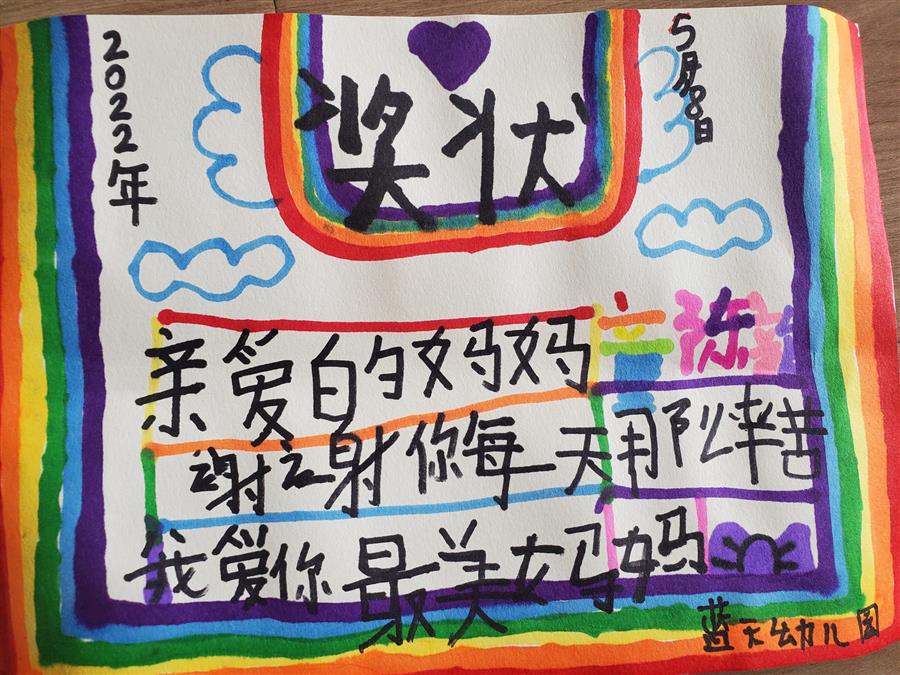 2022年
奖状
5月8日
亲爱的妈妈
谢谢你每一天那么辛苦
我爱你最美妈妈
蓝天幼儿园